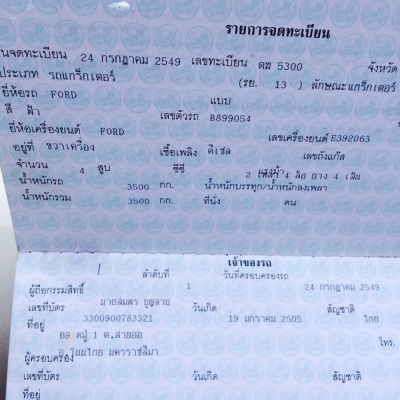 รายการจดทะเบียน
นจดทะเบียน 24 กรกฎาคม 2549 เลขทะเบียน ตฆ 5300 จังหวัด
ประเภท รถแทร็กเตอร์ (รย. 13 ) ลักษณะแทร็กเตอร์
ยี่ห้อรถ FORD แบบ
สี ฟ้า เลขตัวรถ B899054
ยี่ห้อเครื่องยนต์ FORD เลขเครื่องยนต์ E392063
อยู่ที่ ขวาเครื่อง เชื้อเพลิง ดีเซล เลขถังแก๊ส
จำนวน 4 สูบ ซีซี แรงม้า 2 เพลา 4 ล้อ ยาง 4 เส้น
น้ำหนักรถ 3500 กก. น้ำหนักบรรทุก/น้ำหนักลงเพลา
น้ำหนักรวม 3500 กก. ที่นั่ง คน
เจ้าของรถ
ลำดับที่ 1 วันที่ครอบครองรถ 24 กรกฎาคม 2549
ผู้ถือกรรมสิทธิ์ นายสมพร บุญลาย
เลขที่บัตร 3300900783321 วันเกิด 19 มกราคม 2505 สัญชาติ ไทย
ที่อยู่ 69 หมู่ 1 ต.สายออ
อ.โนนไทย นครราชสีมา โทร.
ผู้ครอบครอง
เลขที่บัตร วันเกิด สัญชาติ
ที่อยู่